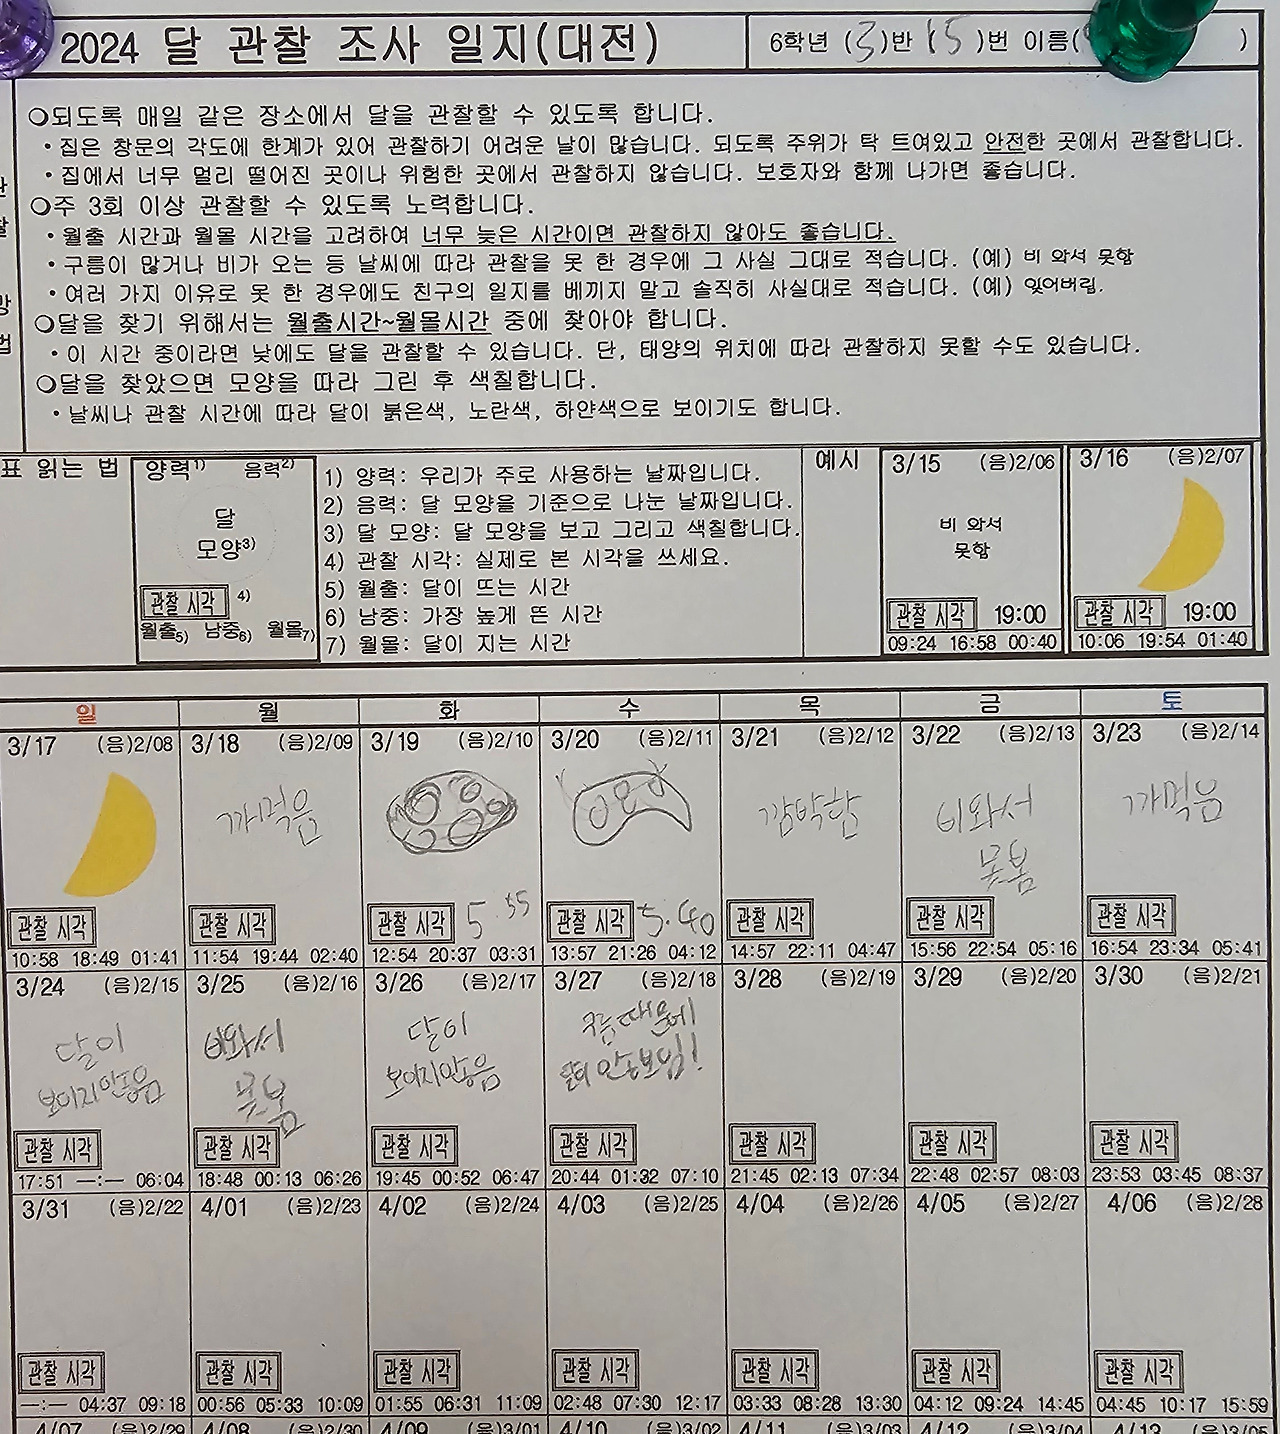 2024 달 관찰 조사 일지(대전)
6학년 (3)반 15 )번 이름( )
○되도록 매일 같은 장소에서 달을 관찰할 수 있도록 합니다.
• 집은 창문의 각도에 한계가 있어 관찰하기 어려운 날이 많습니다. 되도록 주위가 탁 트여있고 안전한 곳에서 관찰합니다.
• 집에서 너무 멀리 떨어진 곳이나 위험한 곳에서 관찰하지 않습니다. 보호자와 함께 나가면 좋습니다.
○주 3회 이상 관찰할 수 있도록 노력합니다.
• 월출 시간과 월몰 시간을 고려하여 너무 늦은 시간이면 관찰하지 않아도 좋습니다.
• 구름이 많거나 비가 오는 등 날씨에 따라 관찰을 못 한 경우에 그 사실 그대로 적습니다. (예) 비 와서 못함
• 여러 가지 이유로 못 한 경우에도 친구의 일지를 베끼지 말고 솔직히 사실대로 적습니다. (예) 잊어버림.
○달을 찾기 위해서는 월출시간~월몰시간 중에 찾아야 합니다.
• 이 시간 중이라면 낮에도 달을 관찰할 수 있습니다. 단, 태양의 위치에 따라 관찰하지 못할 수도 있습니다.
○달을 찾았으면 모양을 따라 그린 후 색칠합니다.
• 날씨나 관찰 시간에 따라 달이 붉은색, 노란색, 하얀색으로 보이기도 합니다.
표 읽는 법
양력1) 음력2)
달
모양3)
관찰 시각 4)
월출5) 남중6) 월몰7)
1) 양력: 우리가 주로 사용하는 날짜입니다.
2) 음력: 달 모양을 기준으로 나눈 날짜입니다.
3) 달 모양: 달 모양을 보고 그리고 색칠합니다.
4) 관찰 시각: 실제로 본 시각을 쓰세요.
5) 월출: 달이 뜨는 시간
6) 남중: 가장 높게 뜬 시간
7) 월몰: 달이 지는 시간
예시
3/15 (음)2/06
비 와서
못함
관찰 시각 19:00
09:24 16:58 00:40
3/16 (음)2/07
관찰 시각 19:00
10:06 19:54 01:40
일 월 화 수 목 금 토
3/17 (음)2/08 3/18 (음)2/09 3/19 (음)2/10 3/20 (음)2/11 3/21 (음)2/12 3/22 (음)2/13 3/23 (음)2/14
까먹음 깜박함 비와서 까먹음
못봄
관찰 시각 관찰 시각 관찰 시각 5.55 관찰 시각 5.40 관찰 시각 관찰 시각 관찰 시각
10:58 18:49 01:41 11:54 19:44 02:40 12:54 20:37 03:31 13:57 21:26 04:12 14:57 22:11 04:47 15:56 22:54 05:16 16:54 23:34 05:41
3/24 (음)2/15 3/25 (음)2/16 3/26 (음)2/17 3/27 (음)2/18 3/28 (음)2/19 3/29 (음)2/20 3/30 (음)2/21
달이 비와서 달이 구름때문에
보이지안충음 못봄 보이지안충음 안보임!
관찰 시각 관찰 시각 관찰 시각 관찰 시각 관찰 시각 관찰 시각 관찰 시각
17:51 —:— 06:04 18:48 00:13 06:26 19:45 00:52 06:47 20:44 01:32 07:10 21:45 02:13 07:34 22:48 02:57 08:03 23:53 03:45 08:37
3/31 (음)2/22 4/01 (음)2/23 4/02 (음)2/24 4/03 (음)2/25 4/04 (음)2/26 4/05 (음)2/27 4/06 (음)2/28
관찰 시각 관찰 시각 관찰 시각 관찰 시각 관찰 시각 관찰 시각 관찰 시각
—:— 04:37 09:18 00:56 05:33 10:09 01:55 06:31 11:09 02:48 07:30 12:17 03:33 08:28 13:30 04:12 09:24 14:45 04:45 10:17 15:59
4/07 (음)2/29 4/08 (음)2/30 4/09 (음)3/01 4/10 (음)3/02 4/11 (음)3/03 4/12 (음)3/04 4/13 (음)3/05